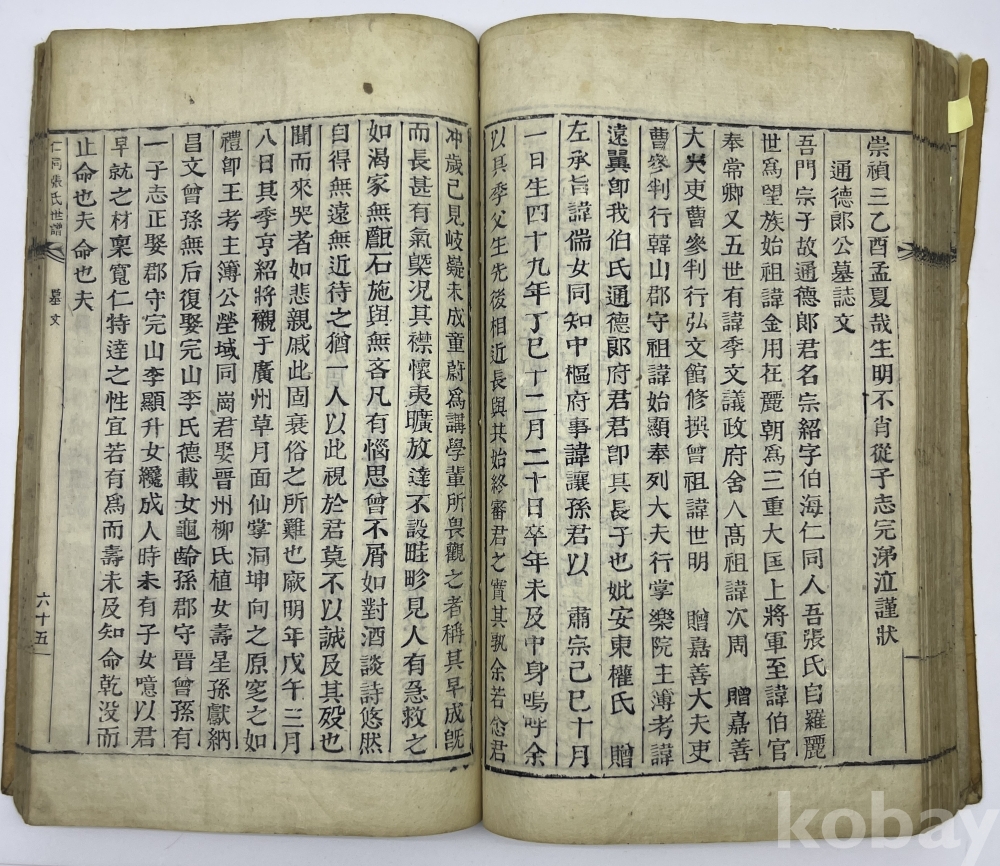 崇禎三乙酉孟夏哉生明不肖從子志完涕泣謹狀
通德郞公墓誌文
吾門宗子故通德郞君名宗紹字伯海仁同人吾張氏自羅麗
世爲望族始祖諱金用在麗朝爲三重大匡上將軍至諱伯官
奉常卿又五世有諱季文議政府舍人高祖諱次周 贈嘉善
大夫吏曹參判行弘文館修撰曾祖諱世明 贈嘉善大夫吏
曹參判行韓山郡守祖諱始顯奉列大夫行掌樂院主薄考諱
遠翼卽我伯氏通德郞府君君卽其長子也妣安東權氏 贈
左承旨諱偳女同知中樞府事諱讓孫君以 肅宗己巳十月
一日生四十九年丁巳十二月二十日卒年未及中身嗚呼余
以其季父生先後相近長與共始終審君之實其孰余若㤀君
冲歲已見岐嶷未成童蔚爲講學輩所畏觀之者稱其早成旣
而長甚有氣槩况其襟懷夷曠放達不設畦畛見人有急救之
如渴家無甔石施與無吝凡有惱思曾不屑如對酒談詩悠然
自得無遠無近待之猶一人以此視於君莫不以誠及其歿也
聞而來哭者如悲親戚此固衰俗之所難也厥明年戊午三月
八日其季亨紹將襯于廣州草月面仙掌洞坤向之原窆之如
禮卽王考主簿公塋域同崗君娶晋州柳氏植女壽星孫獻納
昌文曾孫無后復娶完山李氏德載女龜齡孫郡守晋曾孫有
一子志正娶郡守完山李顯升女纔成人時未有子女噫以君
早就之材稟寬仁特達之性宜若有爲而壽未及知命乾没而
止命也夫命也夫
仁同張氏世譜
墓文
六十五
kobay